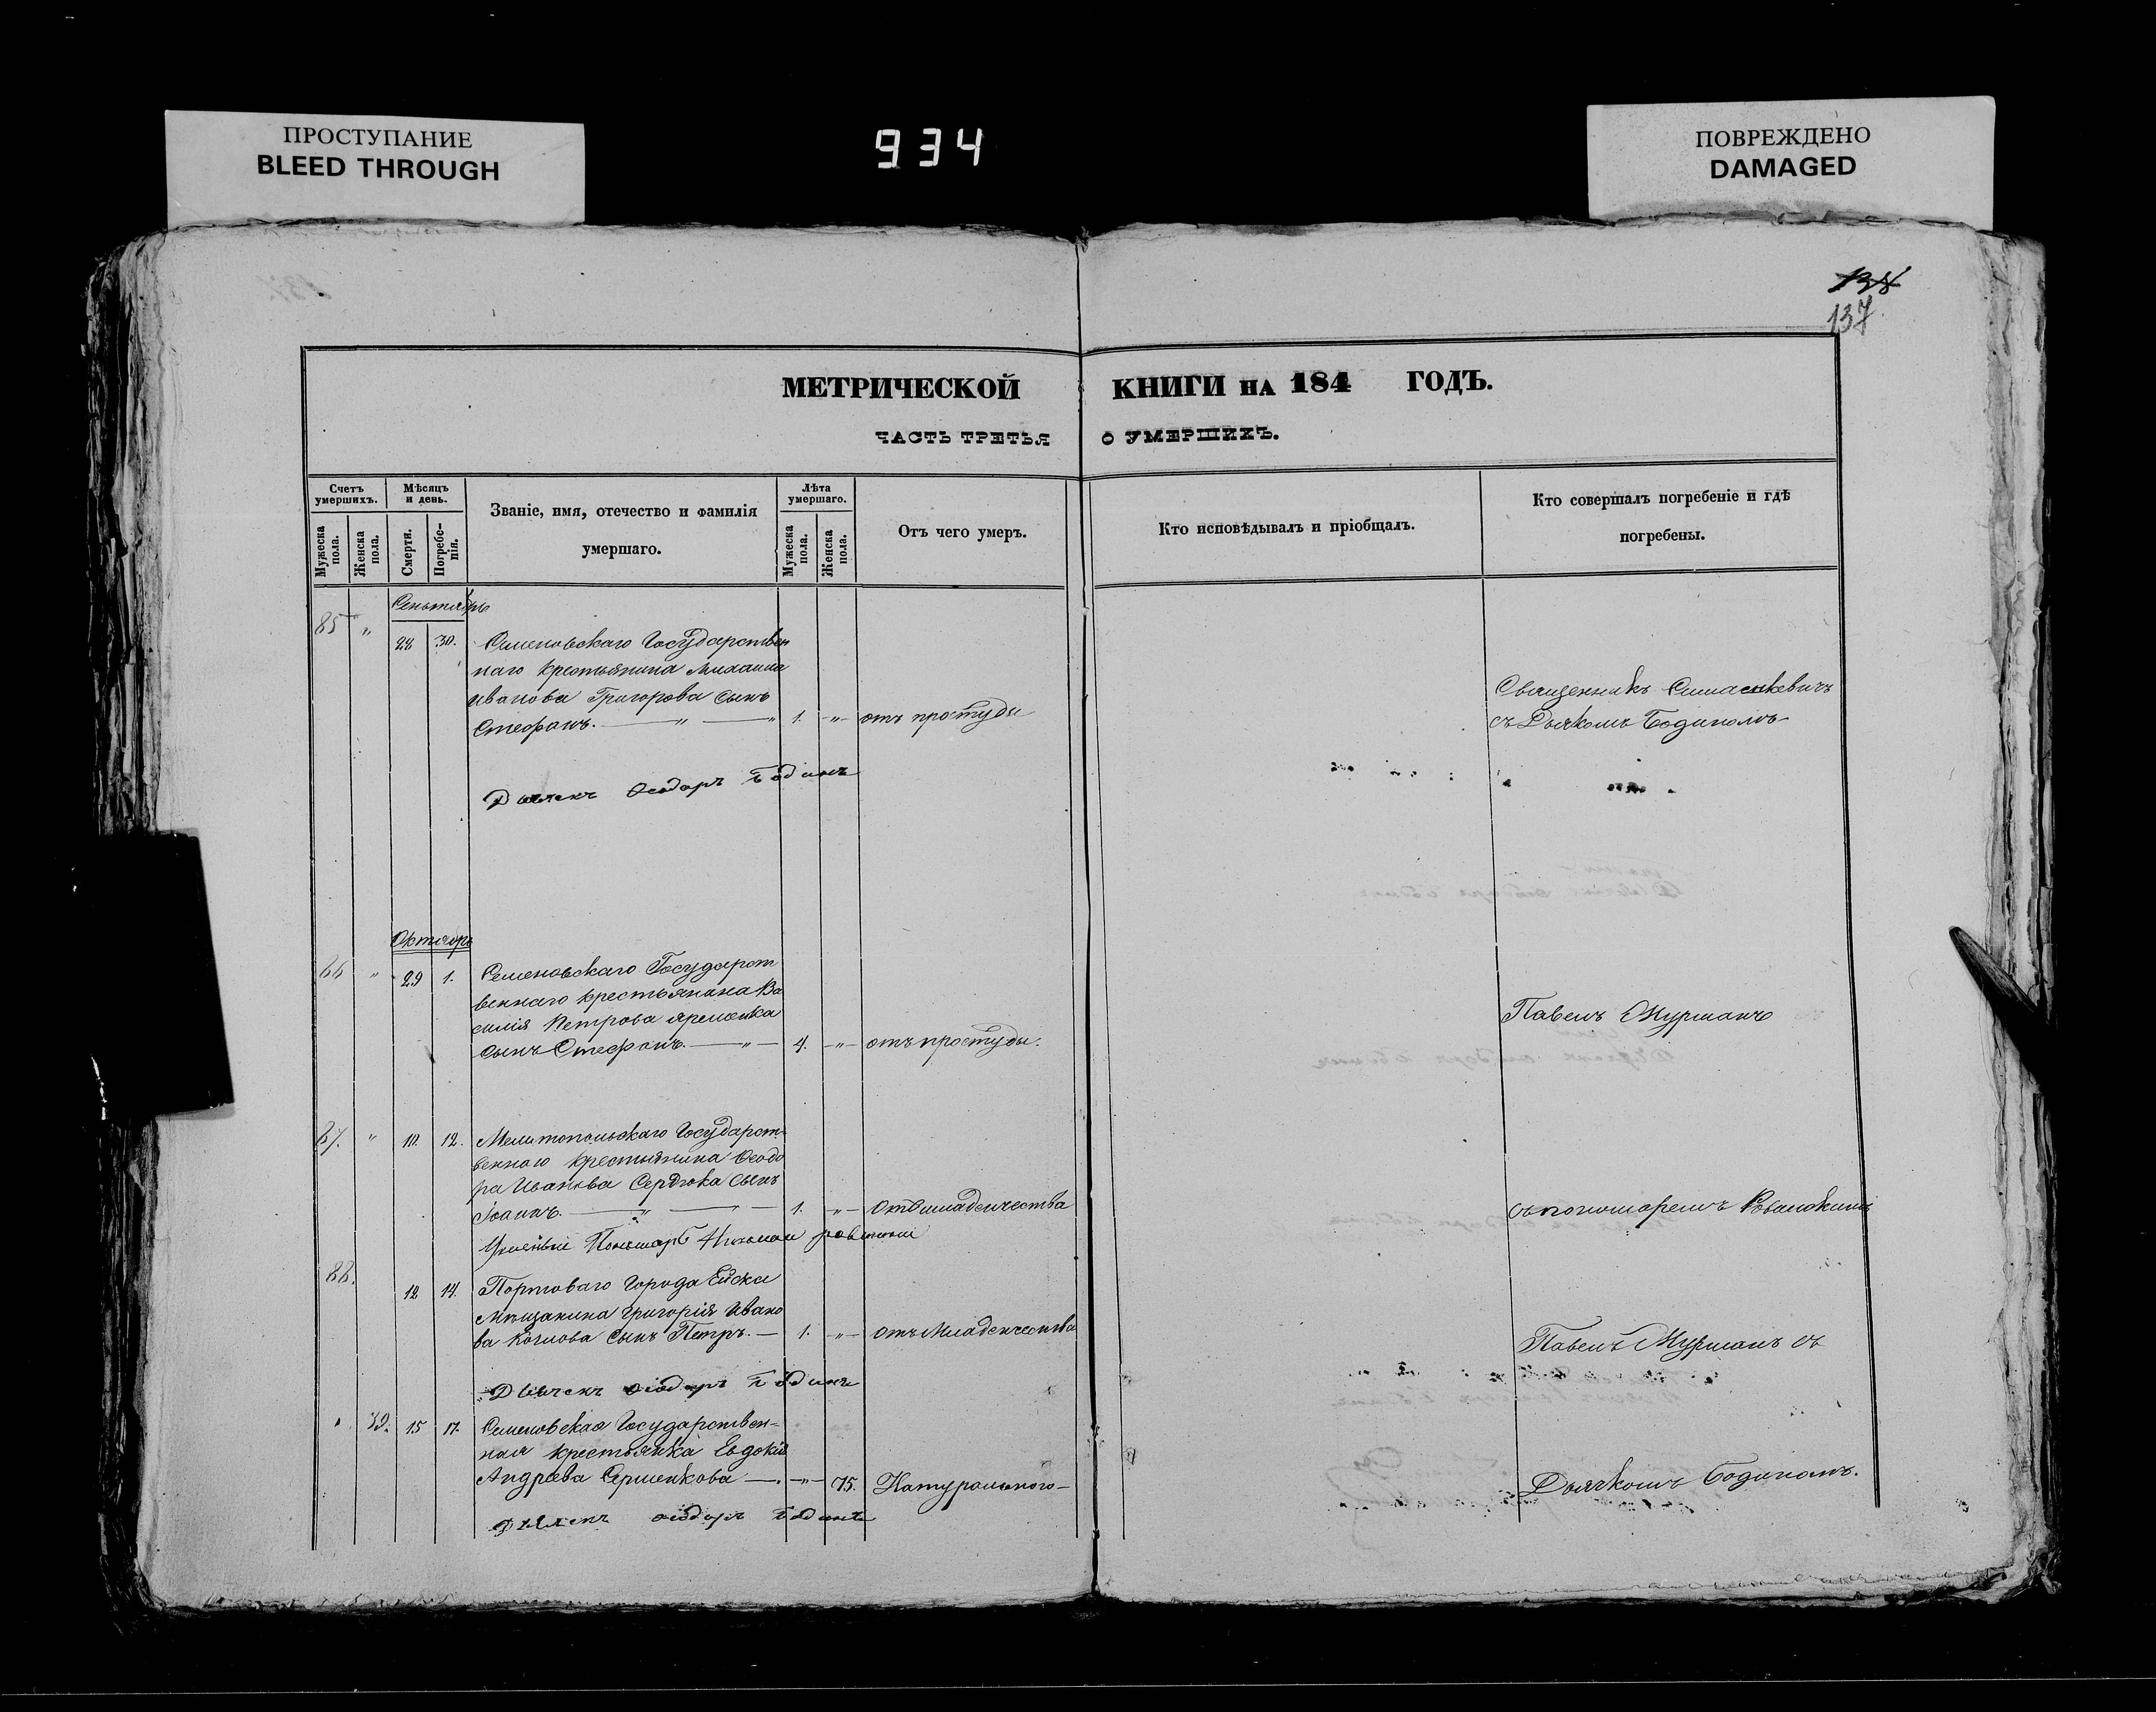 ПРОСТУПАНИЕ
BLEED THROUGH
934
ПОВРЕЖДЕНО
DAMAGED
137
МЕТРИЧЕСКОЙ КНИГИ НА 184 ГОДЪ.
ЧАСТЬ ТРЕТЬЯ О УМЕРШИХЪ.
Счетъ умершихъ.
Мужеска пола.
Женска пола.
Мѣсяцъ и день.
Смерти.
Погребе-нія.
Званіе, имя, отечество и фамилія
умершаго.
Лѣта умершаго.
Мужеска пола.
Женска пола.
Отъ чего умеръ.
Кто исповѣдывалъ и пріобщалъ.
Кто совершалъ погребеніе и гдѣ
погребены.
Сентябрь
85 " 28 30. Семеновскаго Государствен
наго крестьянина Михаила
Иванова Григорова сынъ
Стефанъ. — " — " 1. — " — отъ простуды
Священникъ Симашкевичъ
съ Дьячкомъ Бодиномъ
Дьячекъ Феодоръ Бодинъ
Октябрь
86 " 29 1. Семеновскаго Государст
веннаго крестьянина Ва
силія Петрова Яременка
сынъ Стефанъ. — " — 4. — " — отъ простуды.
Павелъ Журманъ
87. " 10. 12. Мелитопольскаго Государст
веннаго крестьянина Феодо
ра Иванова Сердюка сынъ
Іоаннъ. — " — " — 1. — " — Отъ младенчества
съ пономаремъ
Пономарь
88. 12 14. Портоваго Города Ейска
Мѣщанина Григорія Ивано
ва Козлова сынъ Петръ. — 1. — " — отъ Младенчества
Павелъ Журманъ съ
Дьячекъ Феодоръ Бодинъ
39. 15 17. Семеновская Государствен-
ная крестьянка Евдокія
Андреева — . — " — 75. Натурального —
Дьячкомъ Бодиномъ.
Дьячекъ Феодоръ Бодинъ